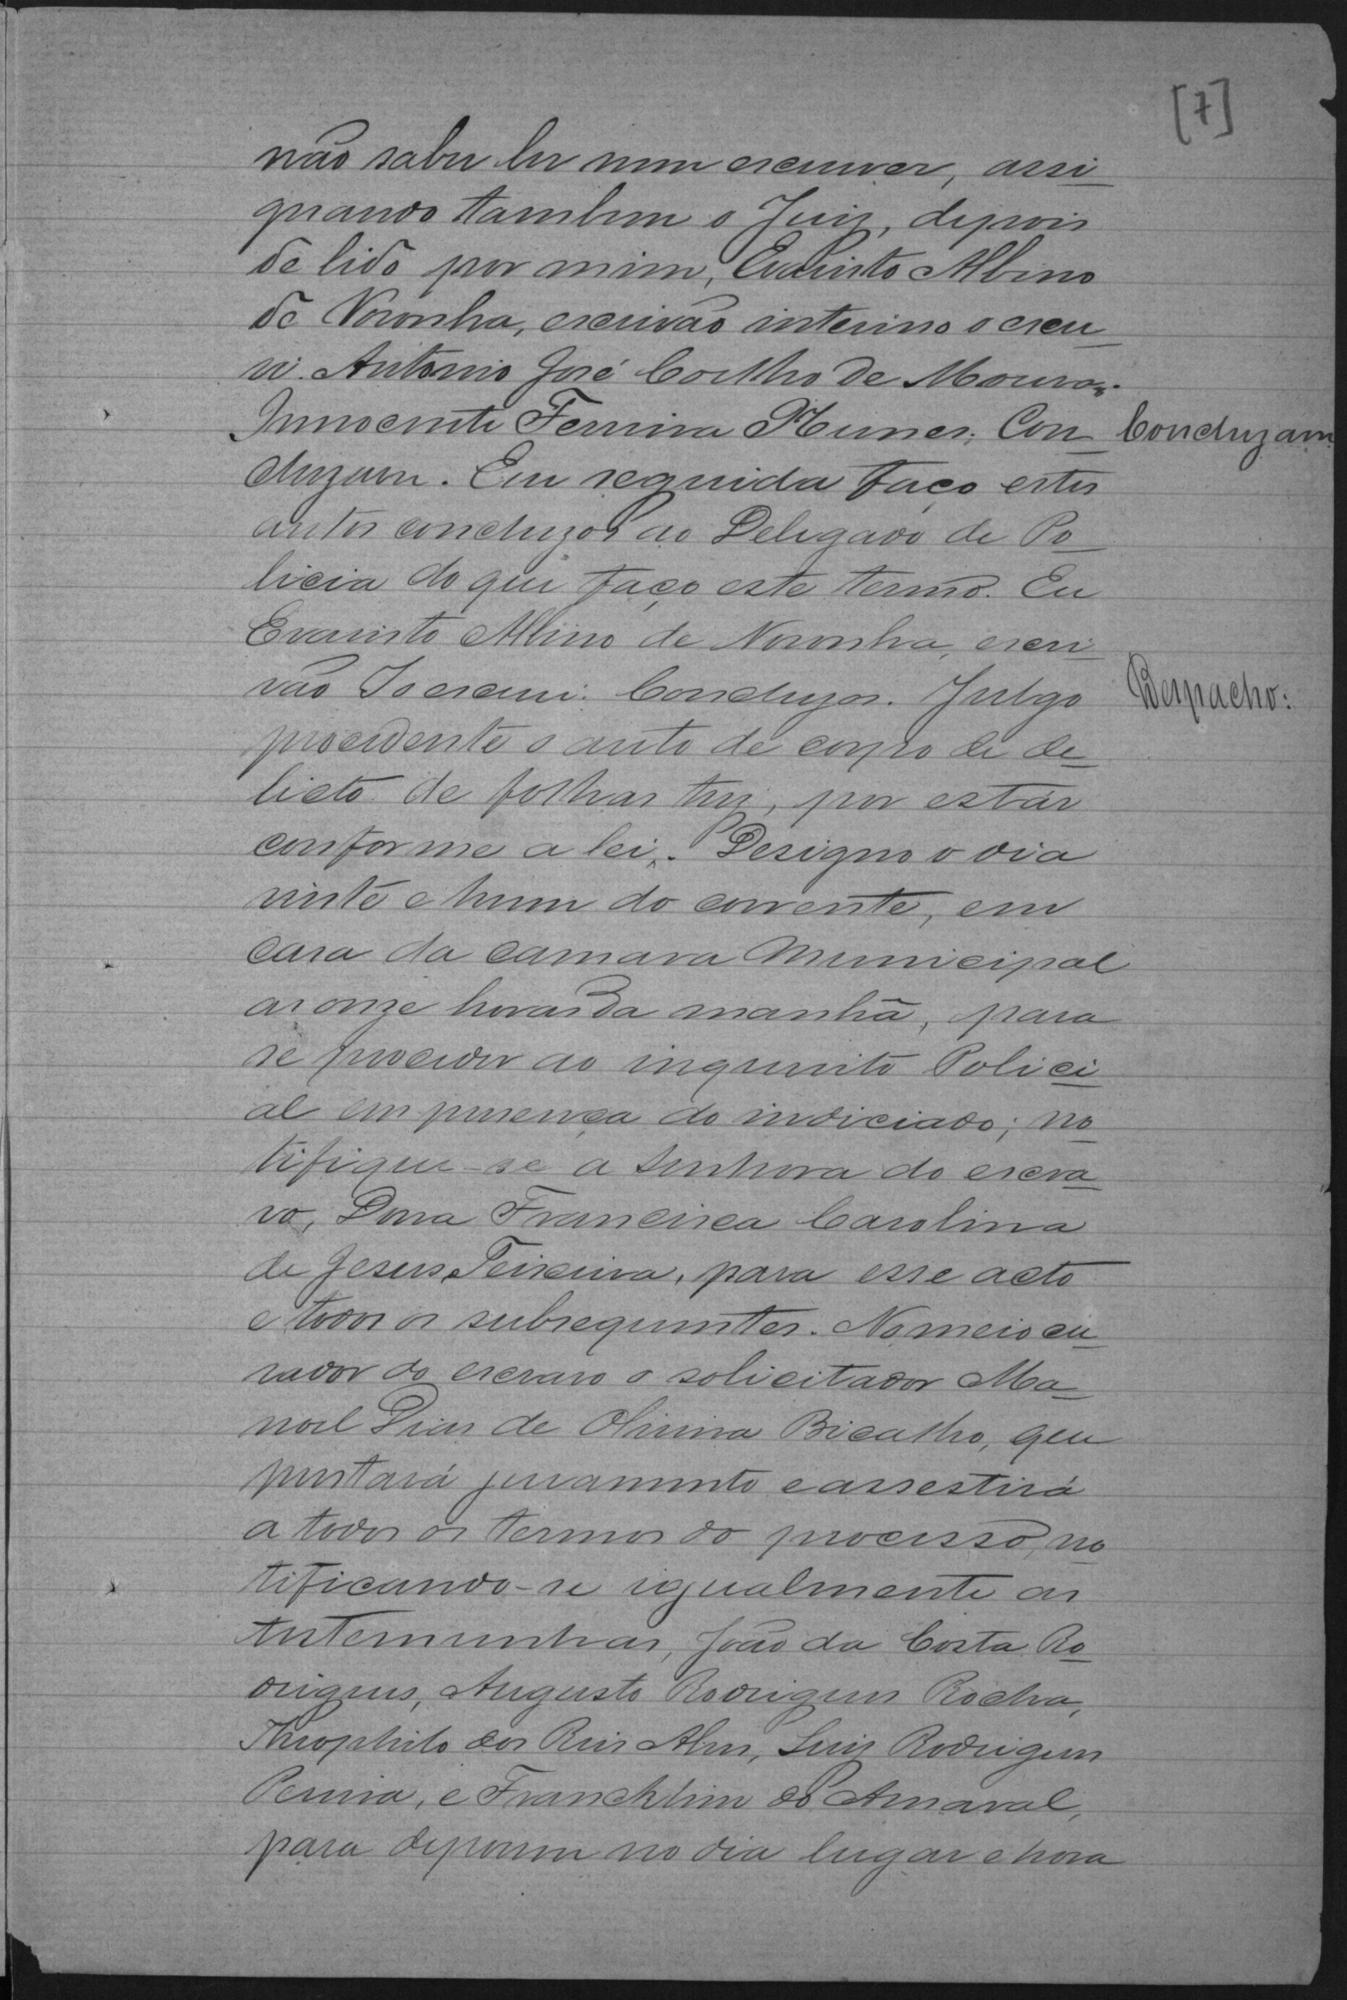 [7]
não saber ler nem escrever, assi_
gnando tambem o Juiz, depois
de lido por mim, Evaristo Albino
de Noronha, escrivão interino o escre_
vi. Antonio José Coelho de Moura.
Innocente Ferreira Nunes. Con_
Concluzam
cluzam. Em seguida faço estes
autos concluzos ao Delegado de Po_
licia do que faço este termo. Eu
Evaristo Albino de Noronha, escri_
vão o escrevi. Concluzos. Julgo
Despacho:
procedente o auto de corpo de de_
licto de folhas tres, por estár
conforme a lei. Designo o dia
vinte e hum do corrente, em
casa da camara Municipal
as onze horas da manhã, para
se proceder ao inquerito Polici_
al em presença do indiciado; no_
tifique-se a Senhora do escra_
vo, Dona Francisca Carolina
de Jesus Teixeira, para esse acto
e todos os subsequentes. Nomeio cu_
rador do escravo o solicitador Ma_
noel Dias de Oliveira Bicalho, que
prestará juramento e assestirá
a todos os termos do processo, no_
tificando-se igualmente as
testemunhas, João da Costa Ro_
drigues, Augusto Rodrigues Rocha,
Theophilo dos Reis Alves, Luiz Rodrigues
Pereira, e Francklim do Amaral,
para deporem no dia lugar e hora